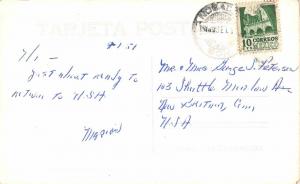 TARJETA POSTAL
7/1 -
Just about ready to
return to USA
Marion
Mr & Mrs George S. Peterson
103 Shuttle Meadow Ave
New Britain, Conn,
USA
10 CORREOS
MEXICO